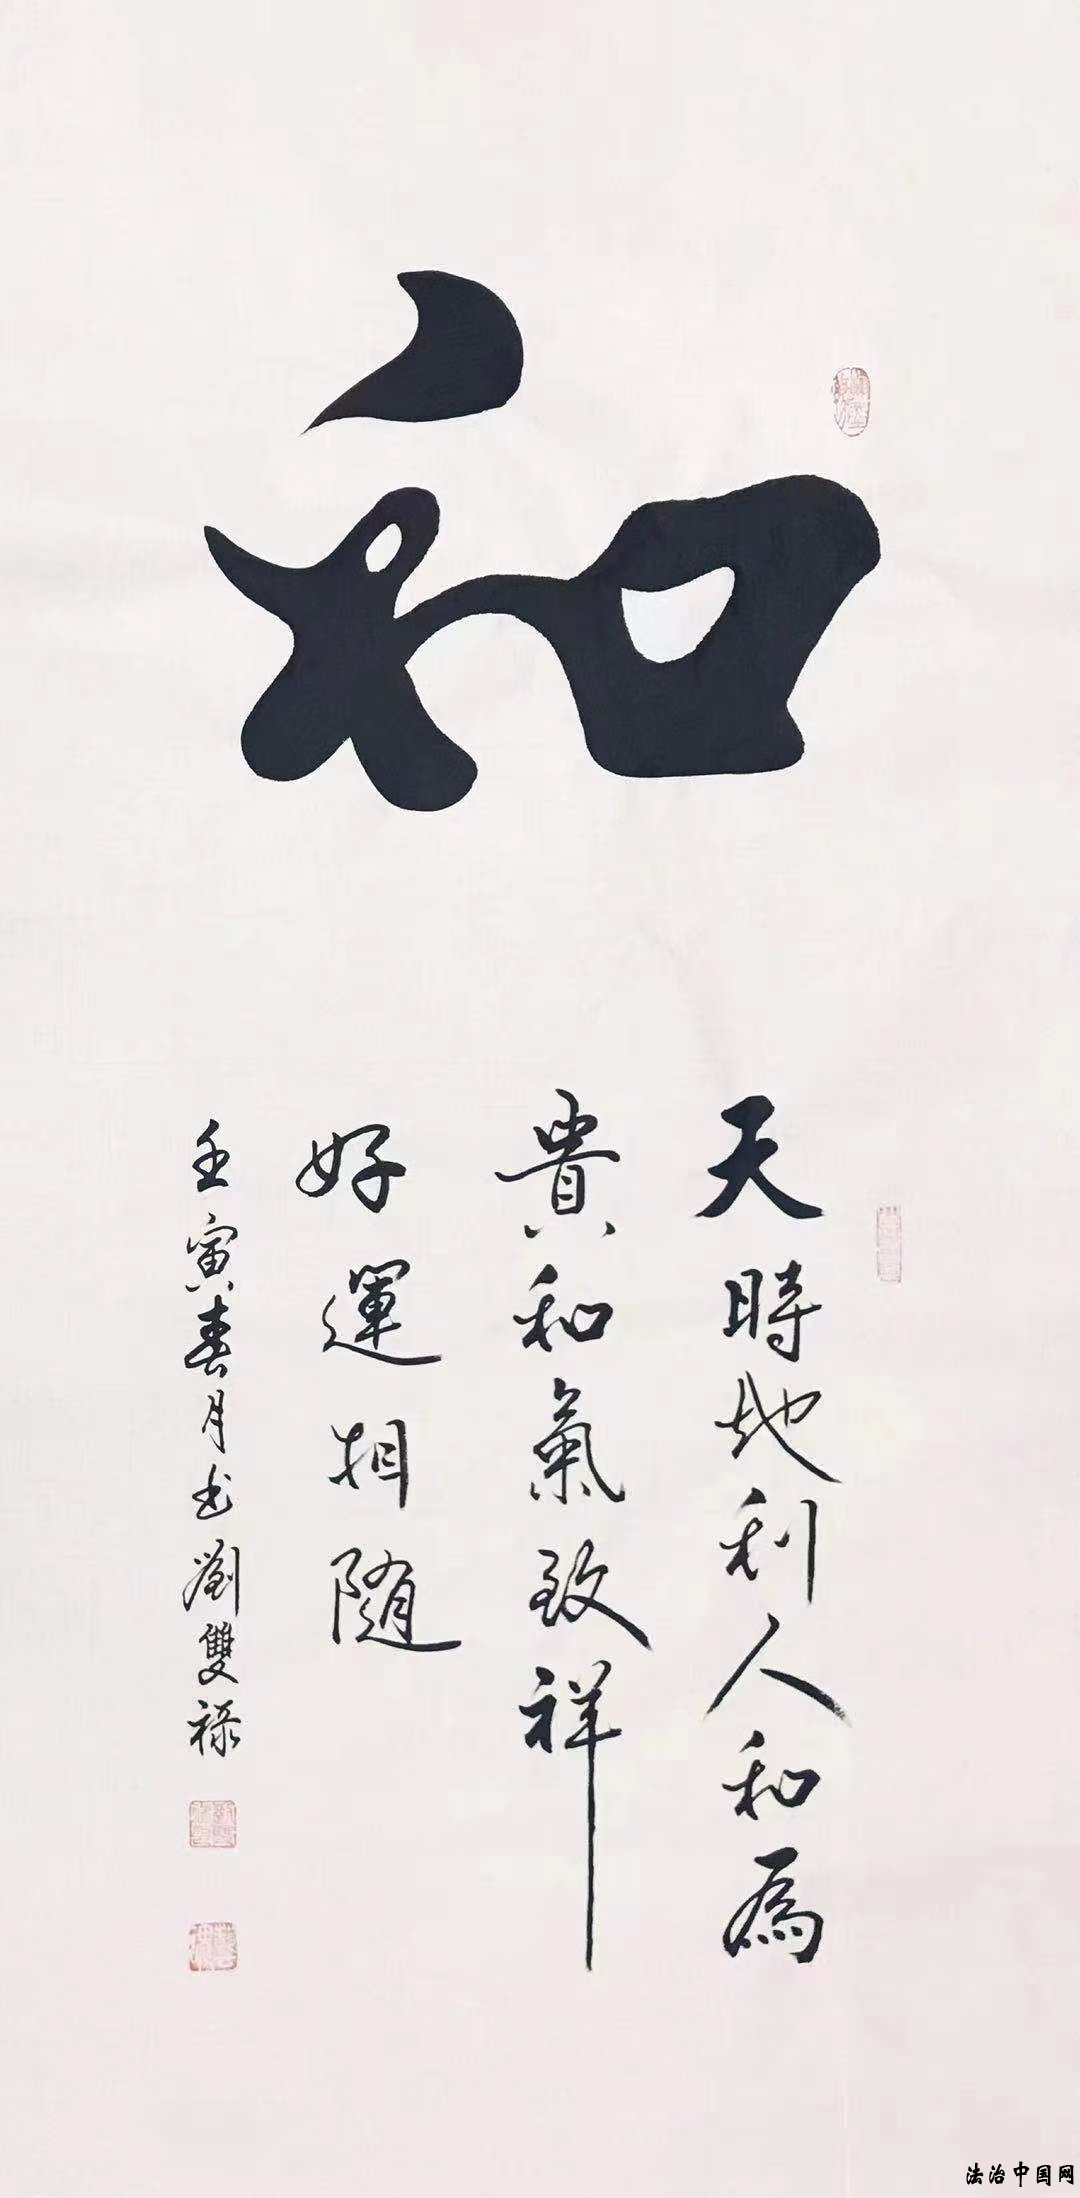 和
天時地利人和為
貴和氣致祥
好運相隨
壬寅春月书劉雙祿
法治中国网